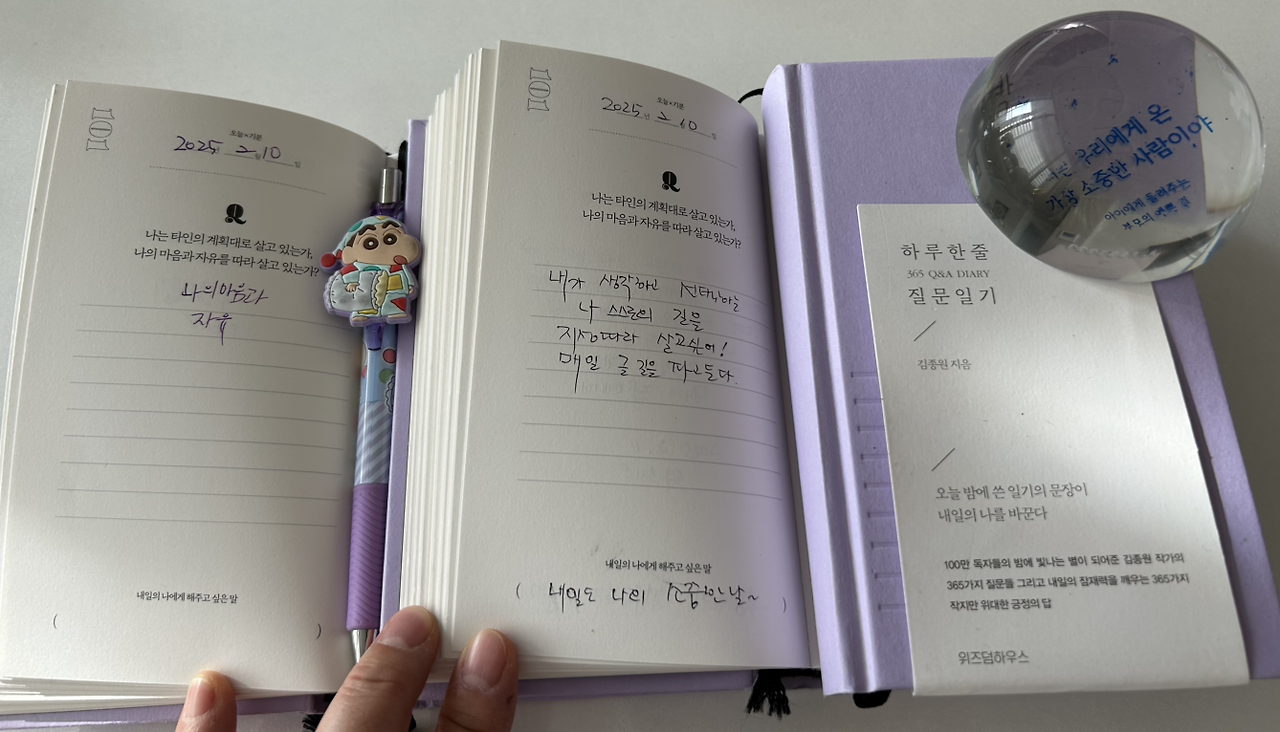 101
오늘×기분
2025년 2월 10일
Q
나는 타인의 계획대로 살고 있는가,
나의 마음과 자유를 따라 살고 있는가?
나의마음과
자유
내일의 나에게 해주고 싶은 말
( )
101
오늘×기분
2025년 2월 10일
Q
나는 타인의 계획대로 살고 있는가,
나의 마음과 자유를 따라 살고 있는가?
내가 생각하고 선택하는
나 스스로의 길을
지성따라 살고싶어!
매일 글 길을 파고든다.
내일의 나에게 해주고 싶은 말
( 내일도 나의 소중한날~ )
하루 한 줄
365 Q&A DIARY
질문 일기
김종원 지음
오늘 밤에 쓴 일기의 문장이
내일의 나를 바꾼다
100만 독자들의 밤에 빛나는 별이 되어준 김종원 작가의
365가지 질문들 그리고 내일의 잠재력을 깨우는 365가지
작지만 위대한 긍정의 답
위즈덤하우스
우리에게 온
가장 소중한 사람이야
아이에게 들려주는
부모의 예쁜 말